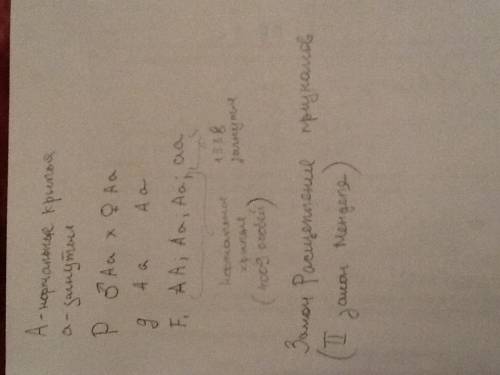 А - нормальные крылья
а - загнутые
P ♂ Aa x ♀ Aa
g A a A a
F₁ AA; Aa; Aa; aa
нормальные
крылья
(4009 особей)
1338
загнутые
Закон Расщепление признаков
(II закон Менделя)